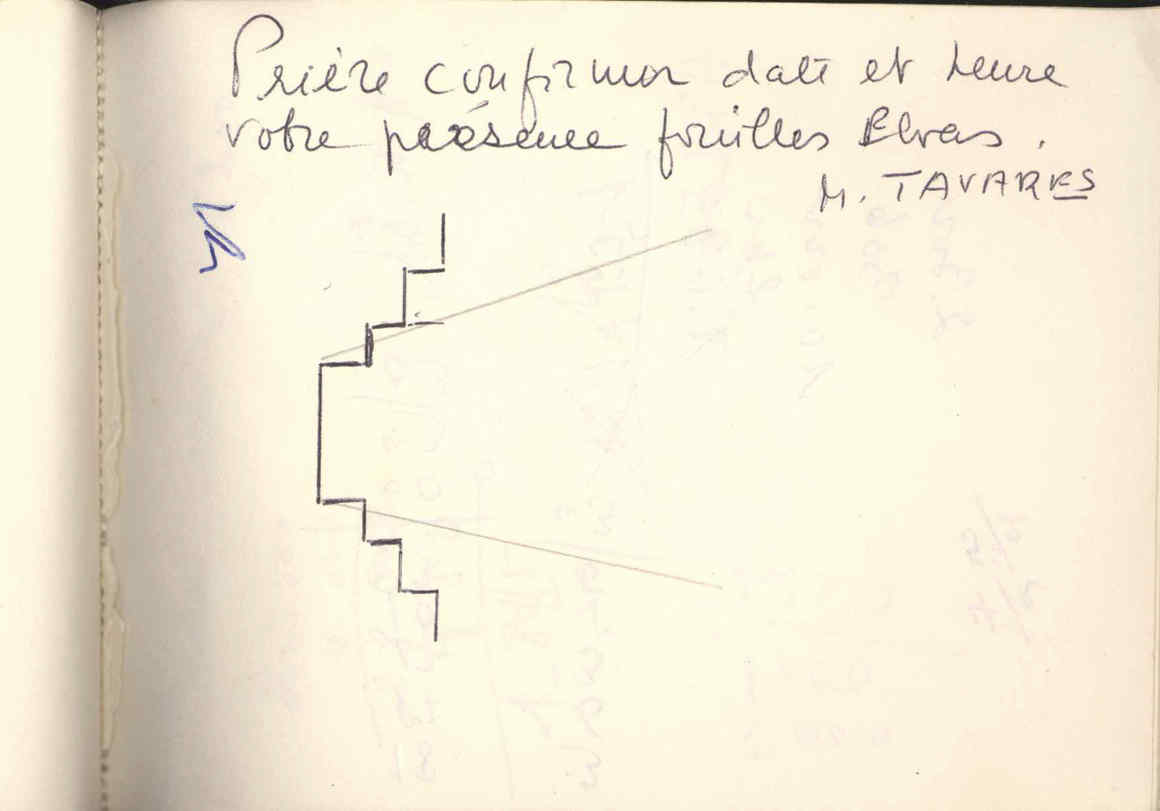 Prière confirmer date et heure
votre présence fouilles Elvas.
M. TAVARES